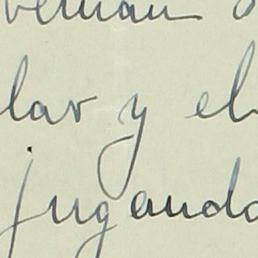 lar y el
jugando